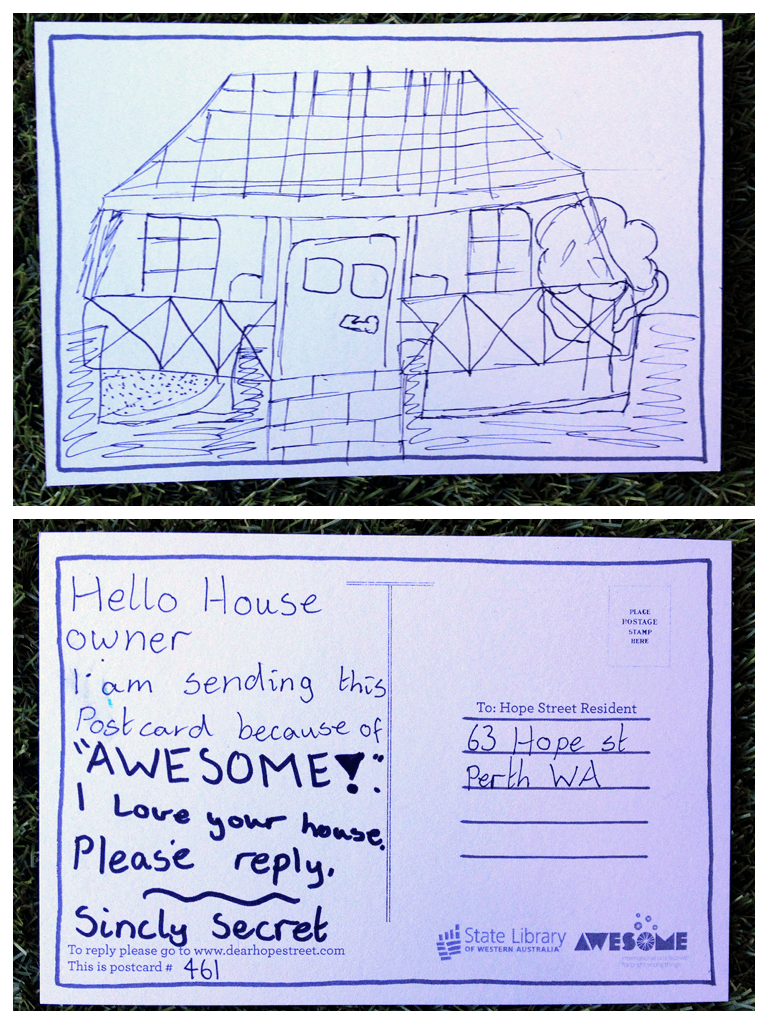 Hello House
owner
I am sending this
Postcard because of
"AWESOME!".
I Love your house.
Please reply.
Sincly Secret
To reply please go to www.dearhopestreet.com
This is postcard # 461
PLACE
POSTAGE
STAMP
HERE
To: Hope Street Resident
63 Hope st
Perth WA
State Library
OF WESTERN AUSTRALIA
AWESOME